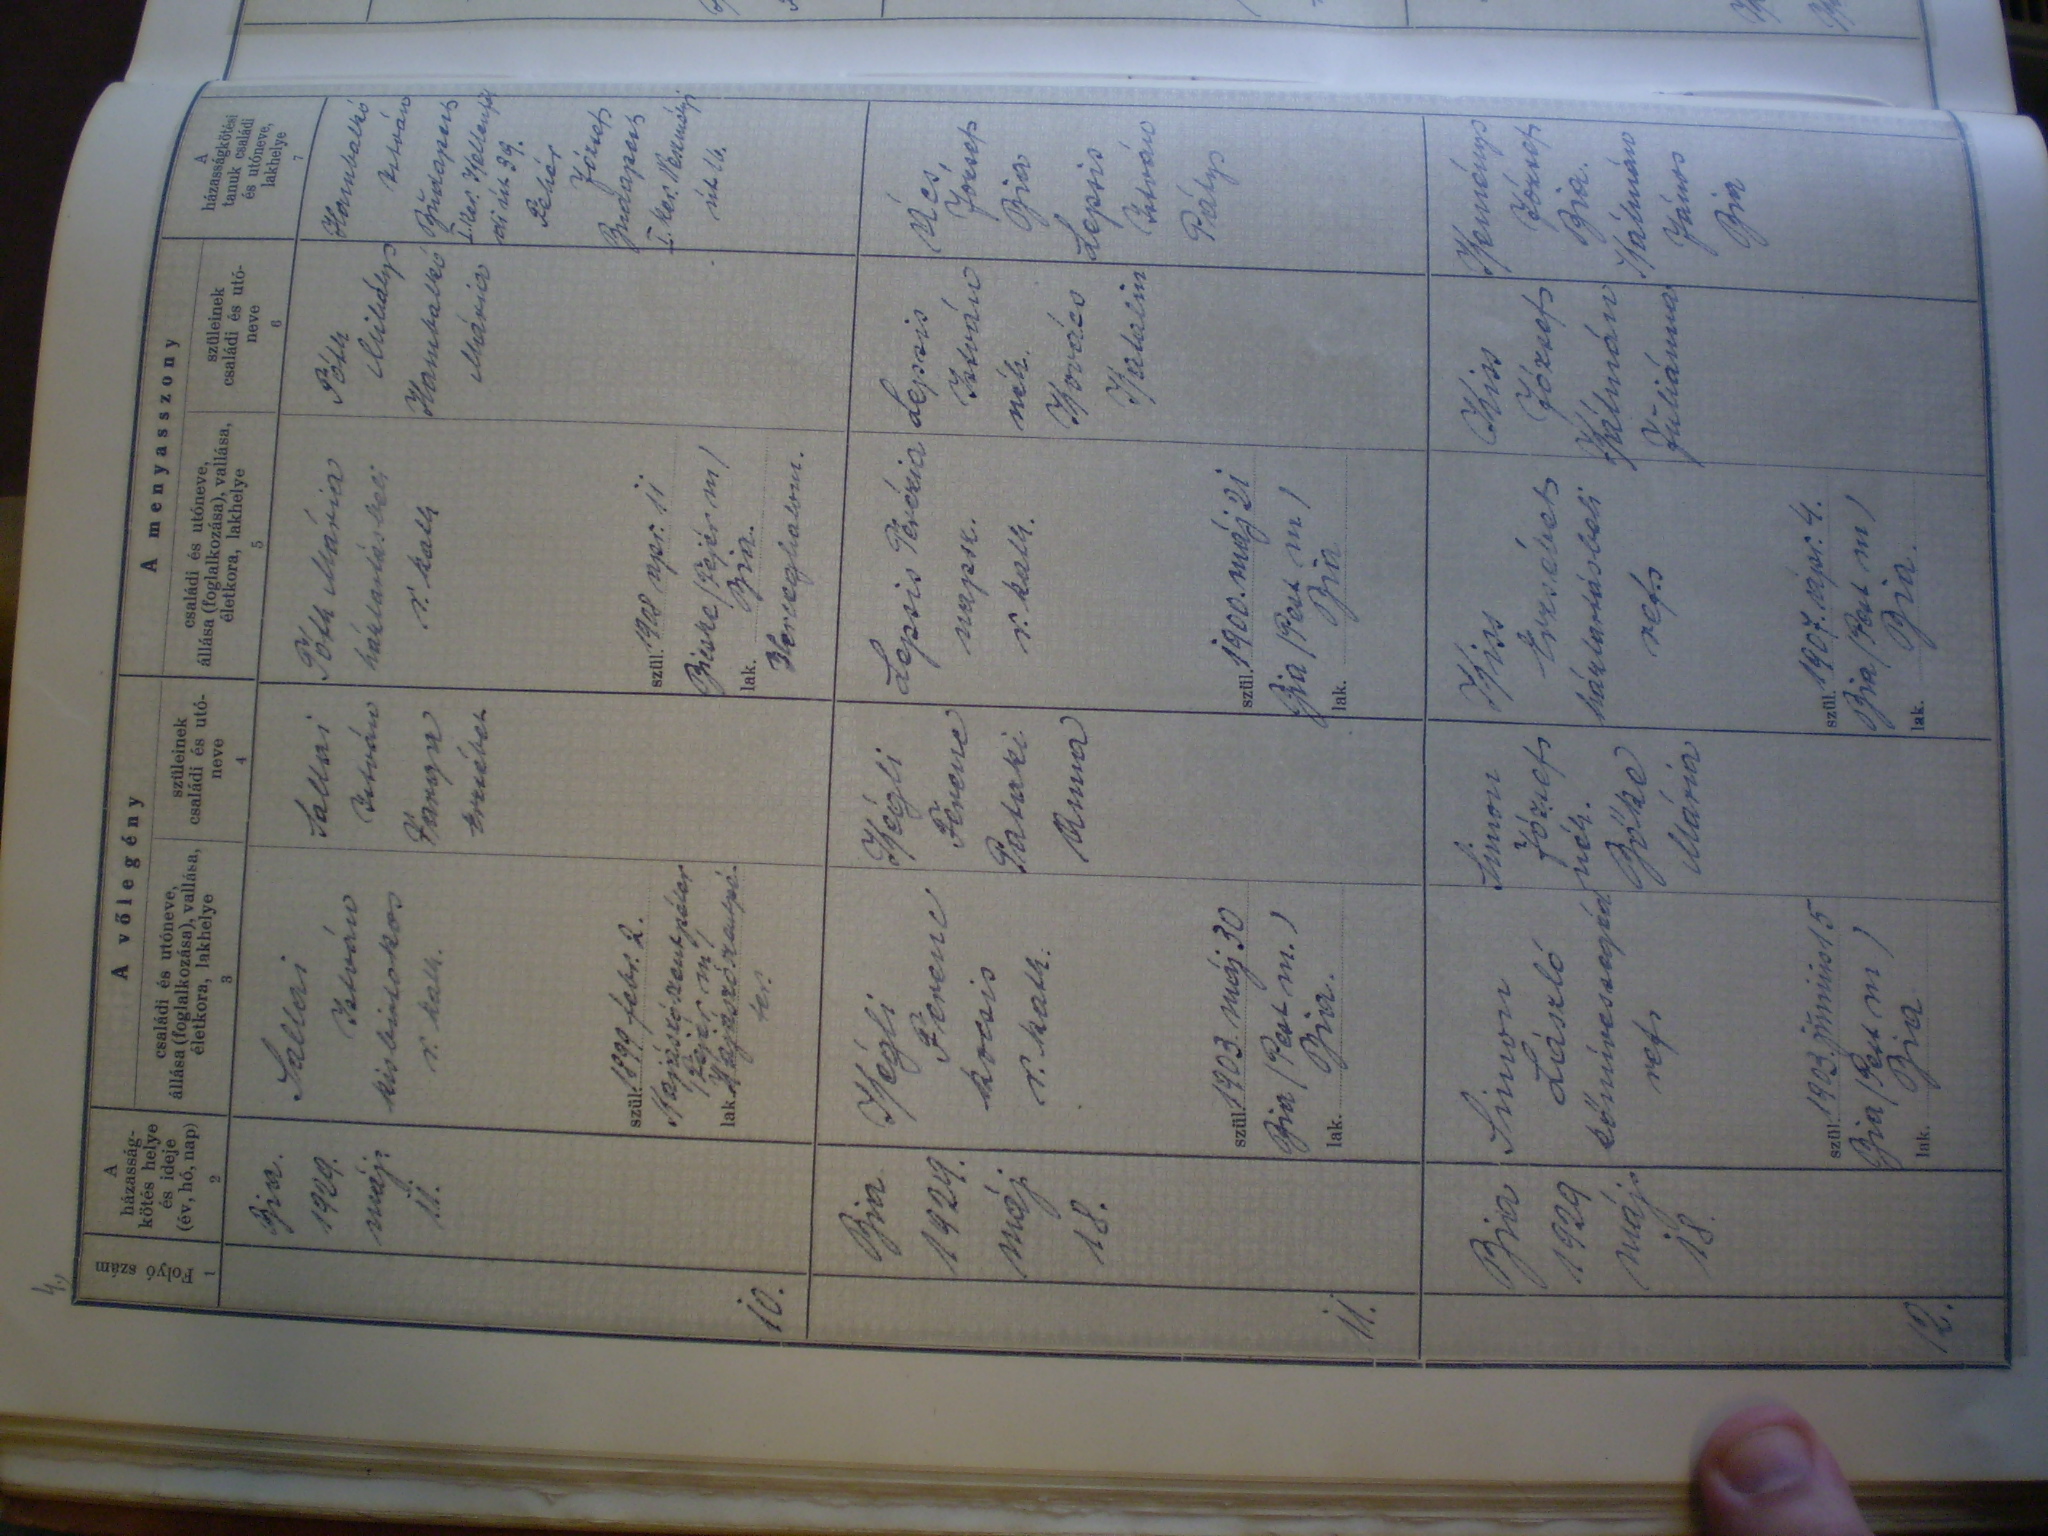 4.,
A vőlegény
A menyasszony
Folyó szám
A
házasság-
kötés helye
és ideje
(év, hó, nap)
családi és utóneve,
állása (foglalkozása), vallása,
életkora, lakhelye
szüleinek
családi és utó-
neve
családi és utóneve,
állása (foglalkozása), vallása,
életkora, lakhelye
szüleinek
családi és utó-
neve
A
házasságkötési
tanuk családi
és utóneve,
lakhelye
1
2
3
4
5
6
7
10.
Bia.
1929.
máj.
11.
Sallai
István
kisbirtokos
r. kath.
szül. 1899 febr. 2.
Fejér m/
lak.
Sallai
István
Varga
Erzsébet
Tóth Mária
háztartásbeli
r. kath
szül. 1908 apr. 11
Bicske /Fejér m/
Bia.
lak.
Herceghalom.
Tóth
Mihály
Hambalkó
Mária
Hambalkó
István
Budapest
I. ker.
út 39.
Fehér
József
Budapest
I. ker.
út 16.
11.
Bia
1929.
máj
18.
Hégli
Ferenc
kocsis
r. kath.
szül. 1903. máj 30
Bia /Pest m./
Bia.
lak.
Hégli
Ferenc
Pataki
Anna
Lepsis Terézia
napsz.
r. kath.
szül. 1900. máj 21
Bia /Pest m./
Bia
lak.
Lepsis
István
néh.
Kovács
Katalin
Rács
József
Bia
Lepsis
István
Páty
12.
Bia
1929
máj.
18.
Simon
László
kőművessegéd
ref.
szül. 1903. június 15
Bia /Pest m/
Bia
lak.
Simon
József
néh.
Bőke
Mária
Kiss
Erzsébet
háztartásbeli
ref.
szül. 1907. ápr. 4.
Bia /Pest m/
Bia.
lak.
Kiss
József
Kálmán
Juliánna
Kemény
József
Bia.
Kálmán
János
Bia